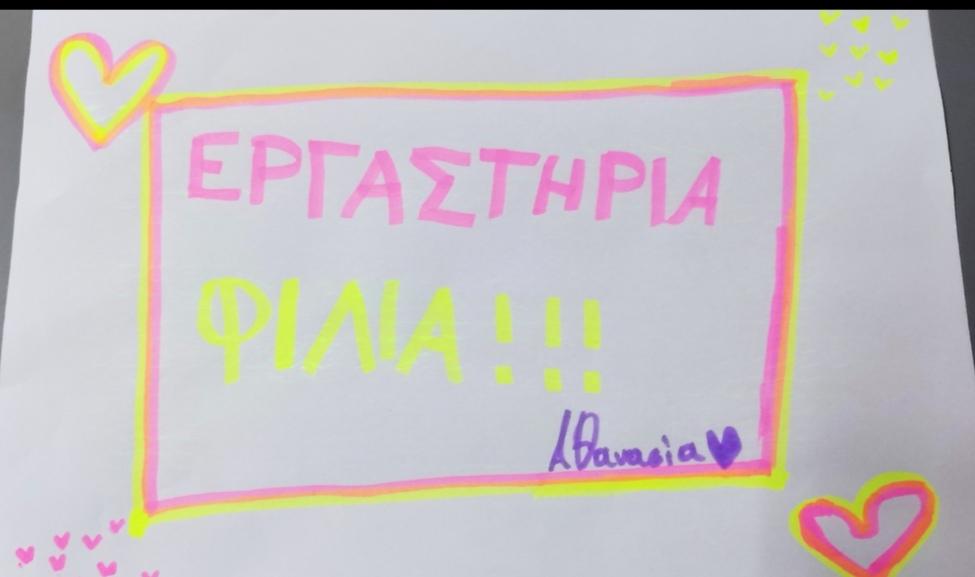 ΕΡΓΑΣΤΗΡΙΑ
ΦΙΛΙΑ!!!
Αθανασία